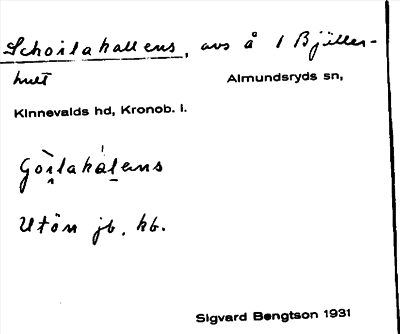 Schoilahallens, avs å 1 Bjiller-
hult Almundsryds sn,
Kinnevalds hd, Kronob. l.
Utön jb, kb.
Sigvard Bengtson 1931